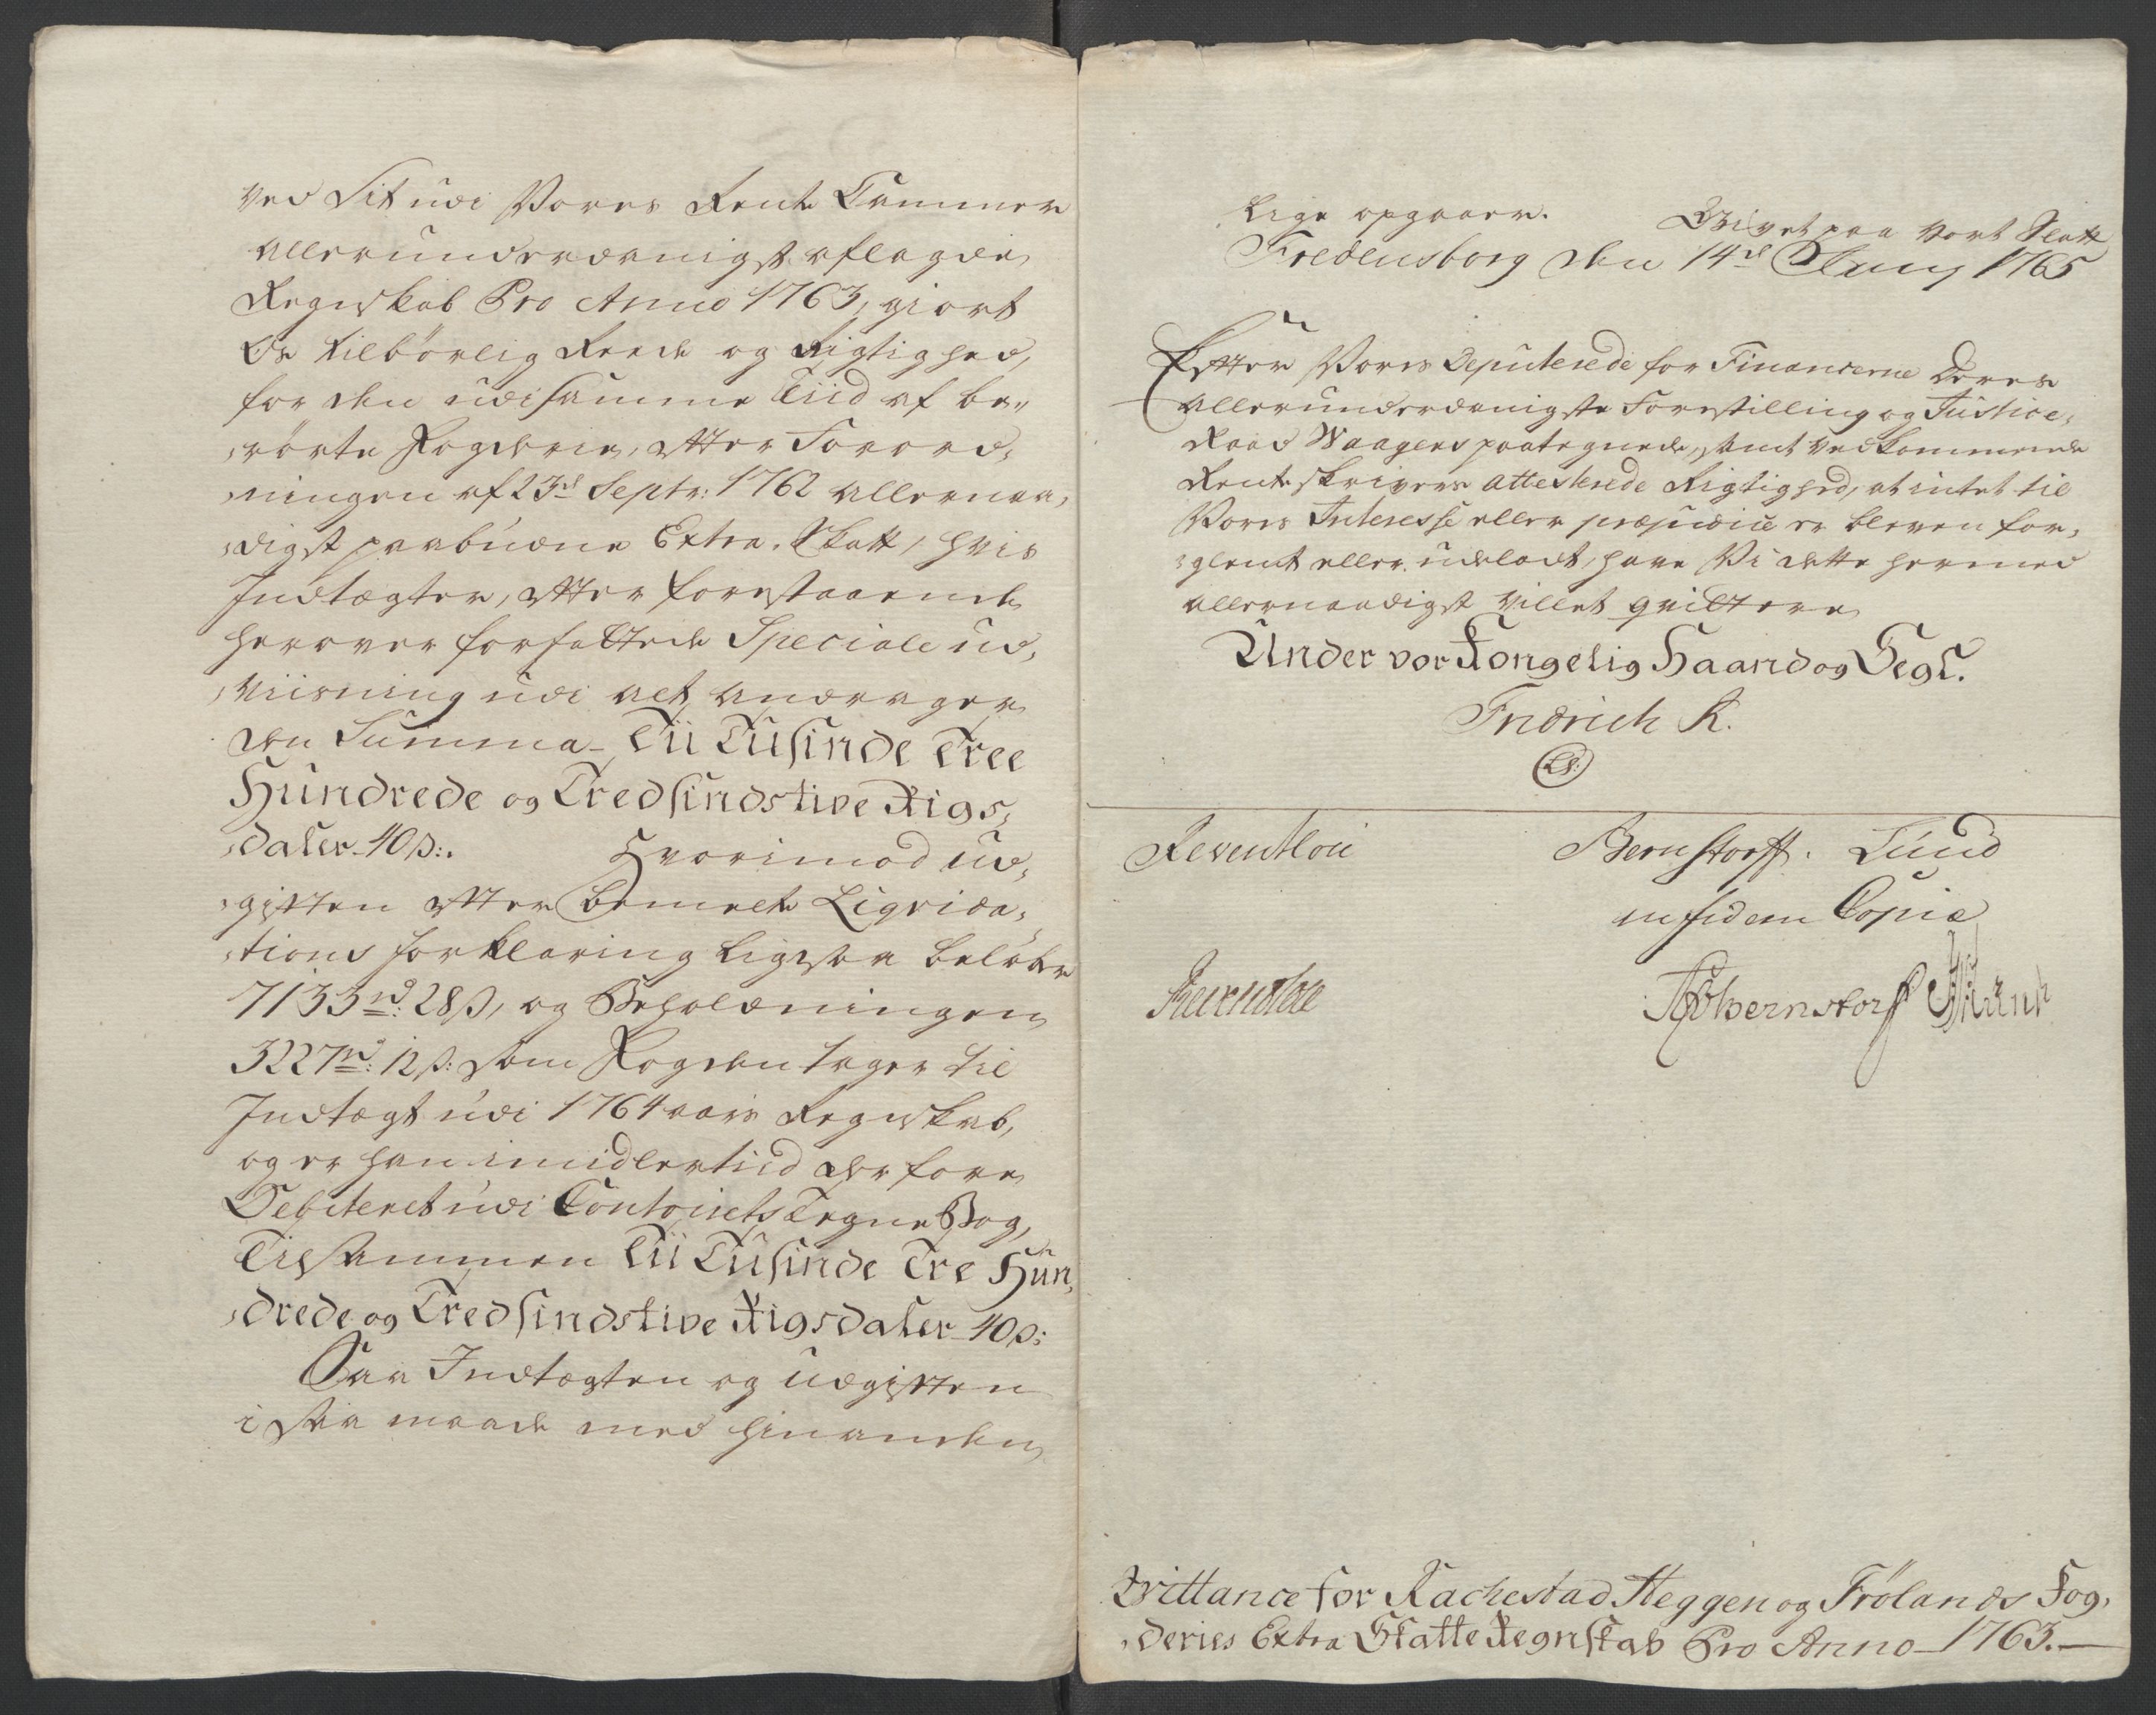 ved Sit udi Vores Rente Cammer
allerunderdanigst aflagde
Regnskab Pro Anno 1763, giort
Os tilbörlig Reede og Rigtighed,
for den udi samme Tiid af be„
„rörte Fogderie, efter Forord„
„ningen af 23de Septr: 1762 allernaa„
„digst paabudne Extra Skatt, hvis
Indtægter, efter forestaaende
herover forfattede Speciale ud„
„viisning udi alt andrager
den Summa Tii Tusinde Tree
Hundrede og Tredsindstive Rigs„
„daler 40 ß:. Hvorimod ud„
„giften efter bemelte Liqvida„
„tions forklaring ligesaa beløber
7133 rd: 28 ß, og Beholdningen
3227 rd: 12 ß: som Fogden tager til
Indtægt udi 1764 aars Regnskab,
og er han imidlertiid derfore
Debiteret udi Contoirets Tegne Bog,
Tilsammen Tii Tusinde Tre Hun„
„drede og Tredsindstive Rigsdaler 40 ß:
Saa Indtægten og udgiften
i saa maade med hinanden
lige opgaaer. Givet paa vort Slott
Fredensborg den 14de Juny 1765
Efter Vores Deputerede for Financerne deres
allerunderdanigste Forestilling og Justice„
Raad Waagens paategnede, samt vedkommende
Renteskrivers attesterede Rigtighed, at intet til
Vores Interesse eller præjudice er bleven for„
„glemt eller udeladt, have Vi dette hermed
allernaadigst villet qvittere
Under vor Kongelig Haand og Segl.
Fridrich R.
LS:
Reventlou Bernstorff. Lund
in fidem Copiæ
Reventlou Bernstorff
Qvittance for Rachestad Heggen og Frölands Fog„
„deries Extra Skatte Regnskab Pro Anno 1763.